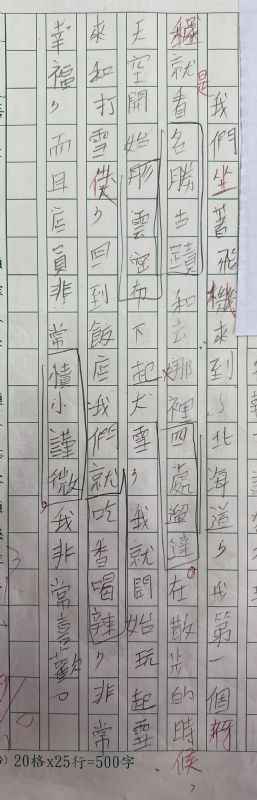 我們坐著飛機來到了北海道,我第一個行
程就是看名勝古蹟和去那裡四處遛達。在散步的時候,
天空開始彤雲密布下起大雪,我就開始玩起雪
來和打雪僕,回到飯店我們就吃香喝辣,非常
幸福,而且店員非常慎小謹微,我非常喜歡。
20格x25行=500字